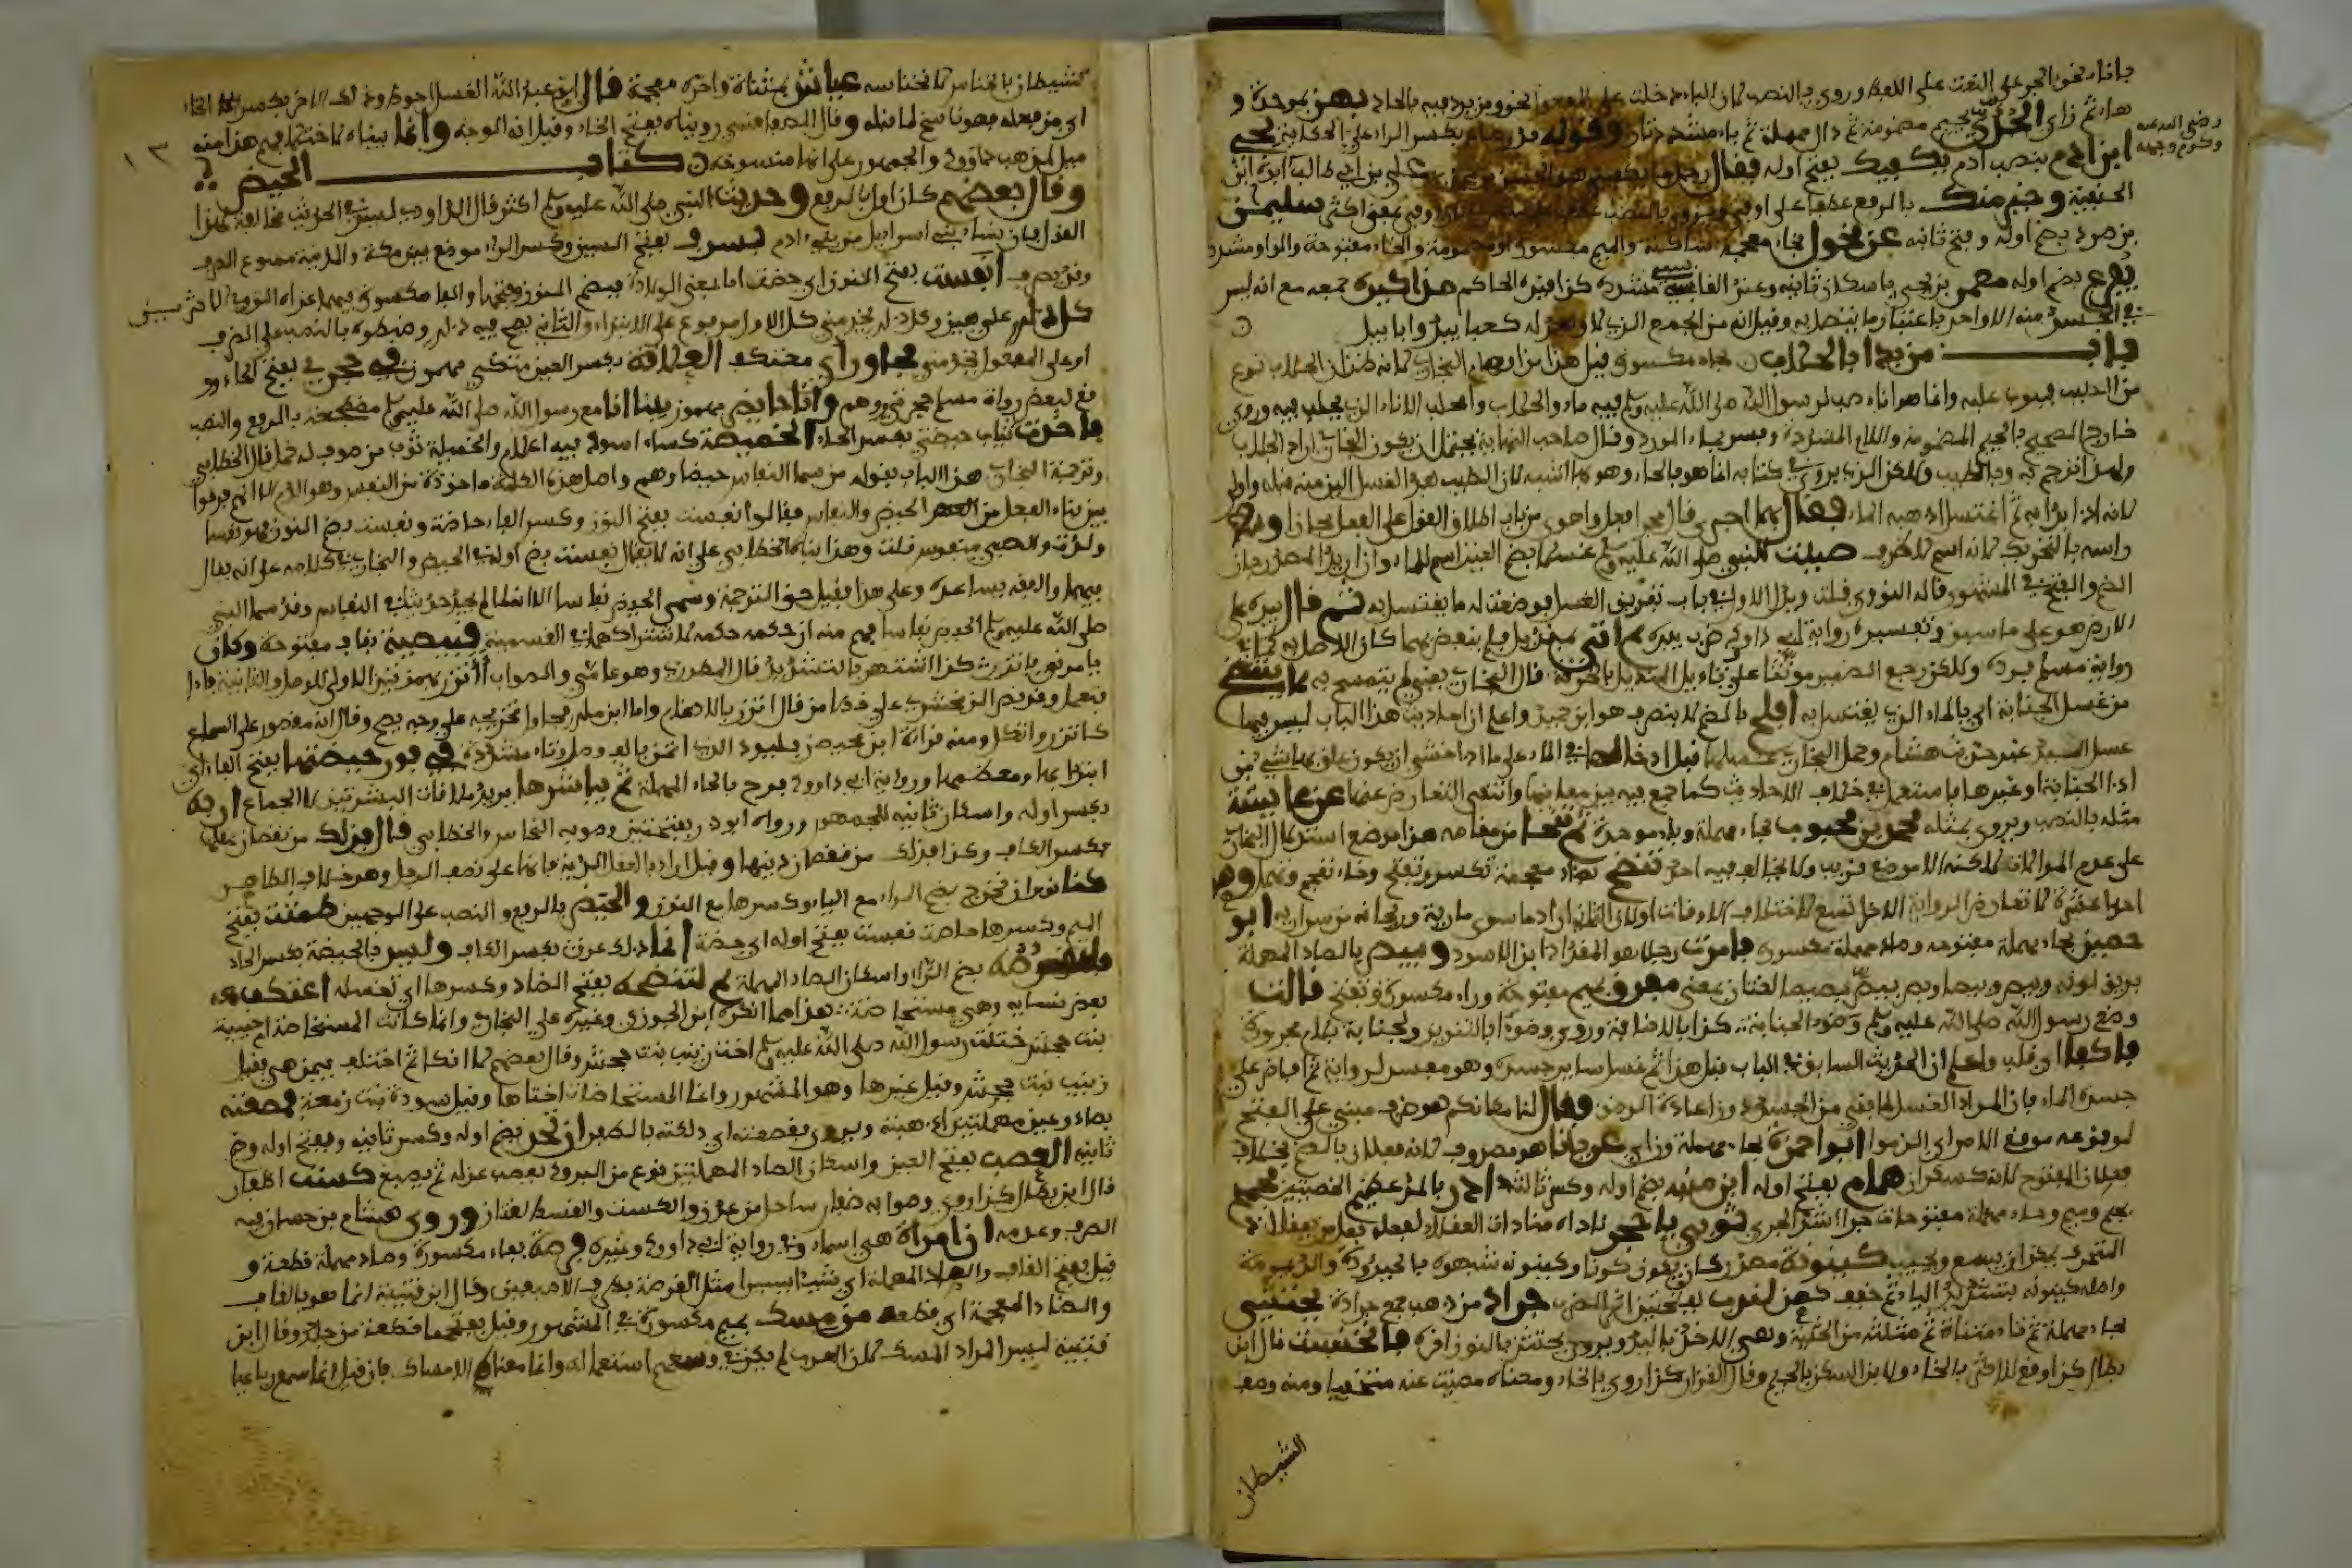 باناء نحو بالجر على النعت على اللفظ وروي بالنصب لان الباء دخلت على المفعول نحو ومن يرد فيه بالحاد بهز بموحدة و
هاء ثم زاي الجدي بجيم مضمومة ثم دال مهملة ثم ياء مشددة
رضي الله عنه
وكرم وجهه
ابن ادم بنصب ادم يكفيك بفتح اوله فقال رجل ما يكفيني هو الحسن بن محمد بن علي بن ابي طالب ابوه ابن
الحنفية وخير منك بالرفع عطفا على اوفى وروي بالنصب سليمن
بن صرد بضم اوله وفتح ثانيه عن مخول بخاء معجمة ساكنة والميم مكسورة او مضمومة والخاء مفتوحة والواو مشددة
يفرغ بضم اوله معمر بن يحيى باسكان ثانيه وعند القابسي مشددة كذا قيده الحاكم مذاكيره جمعه مع انه ليس
في الجسد منه الا واحد باعتبار ما يتصل به وقيل انه من الجمع الذي لا واحد له كعبابيد وابابيل
باب من بدا بالحلاب بحاء مكسورة قيل هذا من اوهام البخاري كانه ظن ان الحلاب نوع
من الطيب فبوب عليه وانما هو اناء صب لرسول الله صلى الله عليه وسلم فيه ماء والحلاب والمحلب الاناء الذي يحلب فيه وروي
خارج الصحيح بالجيم المضمومة واللام المشددة وفسر بماء الورد وقال صاحب النهاية يحتمل ان يكون البخاري اراد الجلاب
ولهذا ترجم به وبالطيب ولكن الذي يروى في كتابه انما هو بالحاء وهو بها اشبه لان الطيب بعد الغسل اليق منه قبله واولى
لانه اذا بدا به ثم اغتسل اذهبه الماء فقال بهما اجرى قال مجرى فعل وهو من باب اطلاق القول على الفعل مجازا وسط
راسه بالتحريك لانه اسم لا ظرف صببت للنبي صلى الله عليه وسلم غسلا بضم الغين اسم للماء وان اريد المصدر جاز
الضم والفتح في المشهور قاله النووي قلت ويدل للاول في باب تفريق الغسل فوضعت له ما يغتسل به ثم قال بيده على
الارض هو على ما سبق وتفسيره رواية ابي داود ضرب بيده ثم اتي بمنديل فلم ينفض بهما كان الاصل به كما في
رواية مسلم فرده ولكن رجع الضمير مؤنثا على تاويل المنديل بالخرقة قال البخاري يعني لم يتمسح به
من غسل الجنابة اي بالماء الذي يغتسل به افلح بالضم لا ينصرف هو ابن حميد واعلم ان احاديث هذا الباب ليس فيها
غسل اليد غير حديث هشام وحمل البخاري غسلها قبل ادخالها في الماء على ما اذا خشي ان يكون علق بها شيء من
اذى الجنابة او غيرها فاستعمل في خلاف الاحاديث كما جمع فيه بين معانيها وانتفى التعارض عنها عن عائشة
مثله بالنصب ويروى بمثله محمد بن محبوب بحاء مهملة وباء موحدة ثم تنحى من مقامه هذا موضع استدلال البخاري
على عدم الموالاة لكنه الا موضع قريب ولا يخالف فيه احد تنضخ بضاد معجمة تكسر وتفتح وخاء تعجم وتهمل وهن
احدى عشرة لا تعارض الرواية الاخرى تسع لاختلاف الاوقات اولان الثاني اراد ما سوى مارية وريحانة من سراريه ابو
حصين بحاء مهملة مفتوحة وصاد مهملة مكسورة فامرت رجلا هو المقداد ابن الاسود وبيص بالصاد المهملة
بريق لونه وبص وبيصا وبص يبص بصيصا لغتان بمعنى مفرق بميم مفتوحة وراء مكسورة وتفتح قالت
وضع رسول الله صلى الله عليه وسلم وضوء الجنابة كذا بالاضافة وروي وضوءا بالتنوين ولجنابة بلام مجرورة
فاكفا اي قلب واعلم ان الحديث السابق في الباب قبل هذا ثم غسل ساير جسده وهو مفسر لرواية ثم افاض على
جسده الماء فان المراد الغسل لما بقي من الجسد دون اعادة الوضوء وقال لنا مكانكم هو ظرف مبني على الفتح
لوقوعه موقع الامر اي الزموا ابو حمزة بحاء مهملة وزاي عريانا هو مصروف لانه فعلان بالضم بخلاف
فعلان المفتوح لانه كسكران همام بفتح اوله ابن منبه بضم اوله وكسر ثالثه ادر بالمد عظيم الخصيتين فجمح
بجيم وميم وحاء مهملة مفتوحات جرى اشد الجري ثوبي يا حجر ناداه مناداة العقلاء لفعله فعل من يعقل اذ
المتحرك يمكن ان يسمع ويجيب كينونة مصدر كان يكون كونا وكينونة شبهوه بالحيدودة والديمومة
واصله كينونة بتشديد الياء ثم خفف كهين لندب بفتحتين اثر الضرب جراد من ذهب جمع جرادة يحتثي
بحاء مهملة ثم تاء مثناة ثم مثلثة من الحثية وهي الاخذ باليد ويروى يحتثن بالنون اخره فانخنست قال ابن
بطال كذا وقع للاكثر بالخاء ولابن السكن بالجيم وقال القزاز كذا روي بالخاء ومعناه مضيت عنه مختفيا ومنه وصف
الشيطان
الشيطان بالخناس لانخناسه عياش بمثناة واخره معجمة قال ابو عبد الله الغسل احوط وذلك الاخر بكسر الخاء
اي من فعله فهو ناسخ لما قبله وقال السفاقسي رويناه بفتح الخاء وقيل انه الوجه وانما بيناه لاختلافهم هذا منه
ميل لمذهب داوود والجمهور على انها منسوخة كتاب الحيض
١٣
وقال بعضهم كان اول بالرفع وحديث النبي صلى الله عليه وسلم اكثر قال الداودي ليس في الحديث مخالفة لهذا
القول فان نساء بني اسرايل من بني ادم بسرف بفتح السين وكسر الراء موضع بين مكة والمدينة ممنوع الصرف
وقد يصرف انفست بفتح النون اي حضت اما بمعنى الولادة فبضم النون وفتحها والفاء مكسورة فيهما عزاه النووي للاكثرين
كل ذلك علي هين وكل ذلك يخدمني كل الاول مرفوع على الابتداء والثاني يصح فيه ذلك وضبطوه بالنصب على الظرف
او على المفعول ليخدمني مجاور اي معتكف العلاقة بكسر العين متكئ مهموز في حجري بفتح الحاء وو
قع لبعض رواة مسلم حجرتي وهم وانا حايض مهموز بينا انا مع رسول الله صلى الله عليه وسلم مضطجعة بالرفع والنصب
فاخذت ثياب حيضتي بكسر الحاء الخميصة كساء اسود فيه اعلام والخميلة ثوب من صوف له خمل قال الخطابي
وترجمة البخاري هذا الباب بقوله من سمى النفاس حيضا وهم واصل هذه الكلمة ماخوذة من النفس وهو الدم الا انهم فرقوا
بين بناء الفعل من الحيض والنفاس فقالوا نفست بفتح النون وكسر الفاء حاضت ونفست بضم النون فهي نفساء
ولدت والصبي منفوس قلت وهذا بناه الخطابي على انه لا يقال نفست بضم اوله في الحيض والبخاري بنى كلامه على انه يقال
فيهما واللغة تساعده وعلى هذا فقيل حق الترجمة وسمى الحيض نفاسا الا انه لما لم يجد حديثا في النفاس وقد سمى النبي
صلى الله عليه وسلم الحيض نفاسا فهم منه ان حكمه حكمه لاشتراكهما في التسمية قبيصة بقاف مفتوحة وكان
يامرني فاتزر كذا اشتهر بالتشديد قال المطرزي وهو عامي والصواب أأتزر بهمزتين الاولى للوصل والثانية فاء
افتعل وقد نص الزمخشري على خطا من قال اتزر بالادغام واما ابن ملك فحاول تخريجه على وجه يصح وقال انه مقصور على السماع
كاتزر واتكل ومنه قراءة ابن محيصن فليود الذي اتمن بالف وصل وتاء مشددة في فور حيضتها بفتح الفاء اي
ابتدائها ومعظمها ورواية ابي داوود فوح بالحاء المهملة ثم يباشرها يريد ملاقاة البشرتين لا الجماع اربه
بكسر اوله واسكان ثانيه للجمهور ورواه ابو ذر بفتحتين وصوبه النحاس والخطابي قال فذلك من نقصان عقلها
بكسر الكاف وكذا فذلك من نقصان دينها وقيل اراد بالعقل الدية فانها على نصف الرجل وهو خلاف الظاهر
كنا نومر ان نخرج بضم الراء مع الياء وكسرها مع النون والحيض بالرفع والنصب على الوجهين طمثت بفتح
الميم وكسرها حاضت نفست بفتح اوله اي حيضة انما ذلك عرق بكسر الكاف وليس بالحيضة بكسر الحاء
فلتقرصه بضم الراء واسكان الصاد المهملة ثم لتنضحه بفتح الضاد وكسرها اي تغسله اعتكف معه
بعض نسائه وهي مستحاضة هذا مما انكره ابن الجوزي وغيره على البخاري وانما كانت المستحاضة ام حبيبة
بنت جحش ختنت رسول الله صلى الله عليه وسلم اخت زينب بنت جحش وقال بعضهم لا انكار ثم اختلف فيمن هي فقيل
زينب بنت جحش وقيل غيرها وهو المشهور وانما المستحاضات اختاها وقيل سودة بنت زمعة فمصعته
بصاد وعين مهملتين اي هيئة ويروى فقصعته اي دلكته بالظفر ان تحد بضم اوله وكسر ثانيه وبفتح اوله وضم
ثانيه العصب بفتح العين واسكان الصاد المهملتين نوع من البرود يعصب غزله ثم يصبغ كست اظفار
قال ابن بطال كذا روي وصوابه ظفار ساحل من عدن والكست والقسط لغتان وروى هشام بن حسان فيه
الصرف وعدمه ان امراة هي اسماء وفي رواية لابي داوود وغيره فرصة بفاء مكسورة وصاد مهملة قطعة و
قيل بفتح القاف والصاد المهملة اي شيئا يسيرا مثل القرصة بطرف الاصبعين وقال ابن قتيبة انما هو بالقاف
والضاد المعجمة اي قطعة من مسك بميم مكسورة في المشهور وقيل بفتحها قطعة من جلد وقال ابن
قتيبة ليس المراد المسك لان العرب لم يكن في وسعهم استعماله وانما معناه الامساك فان قيل انما سمع رباعيا